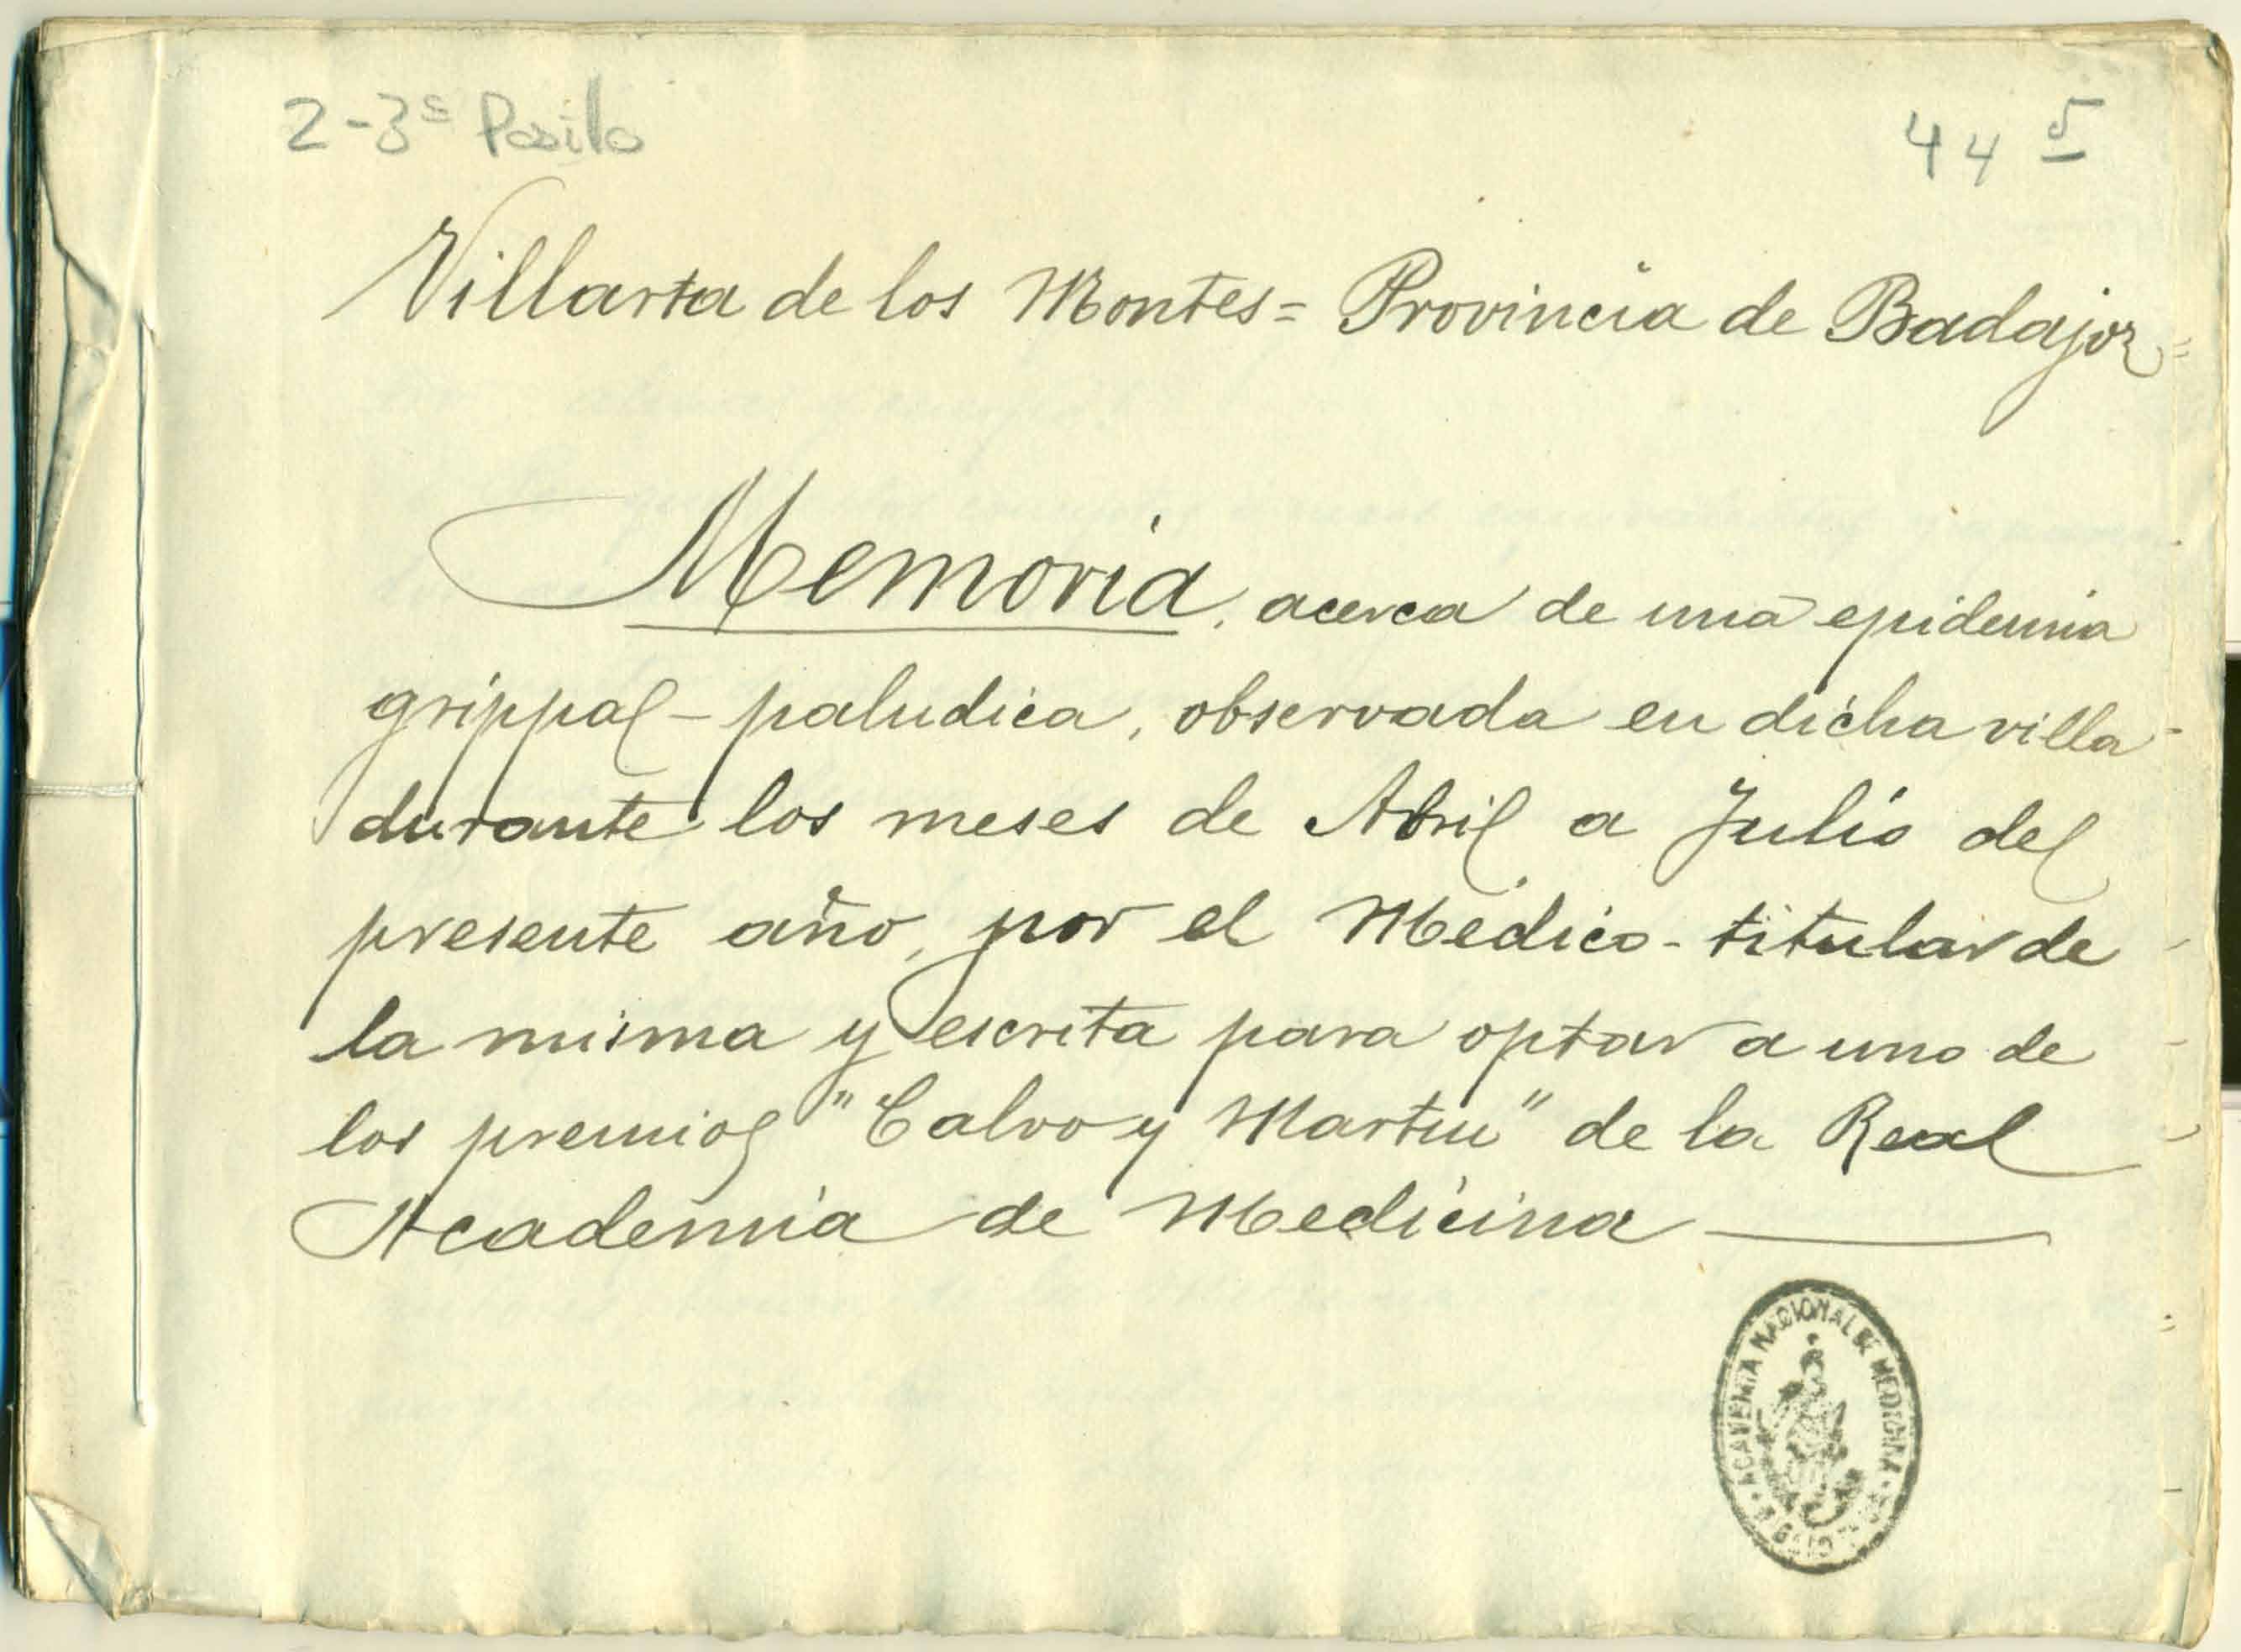 2-3ª Pasillo
44 5
Villarta de los Montes = Provincia de Badajoz =
Memoria, acerca de una epidemia
grippal - paludica, observada en dicha villa
durante los meses de Abril a Julio del
presente año, por el Médico - titular de
la misma y escrita para optar a uno de
los premios "Calvo y Martin" de la Real
Academia de Medicina
ACADEMIA NACIONAL DE MEDICINA